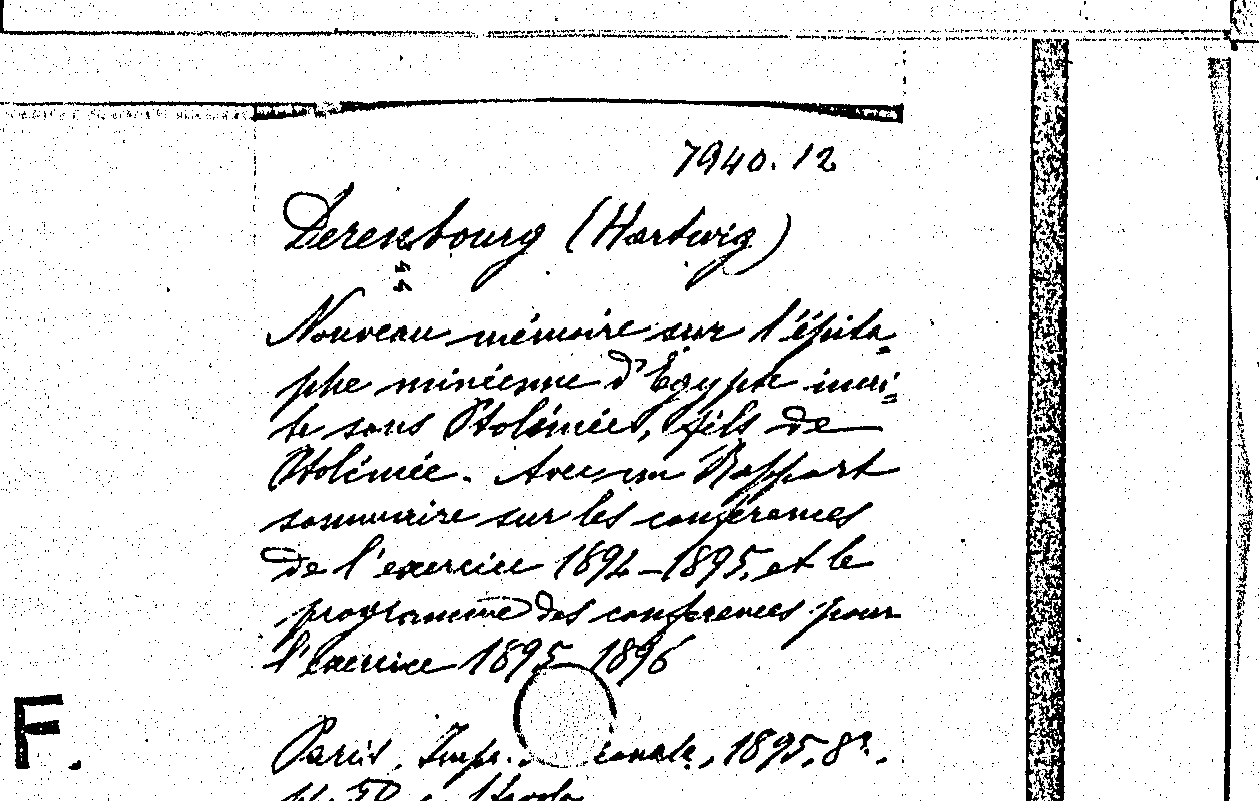 7940.12
Derenbourg (Hartwig)
44
Nouveau mémoire sur l'épita-
phe minéenne d'Egypte inscri-
te sous Ptolémée, fils de
Ptolémée. Avec un Rapport
sommaire sur les conférences
de l'exercice 1894-1895, et le
programme des conférences pour
l'exercice 1895-1896
F.
Paris, Impr. 1895, 8º.